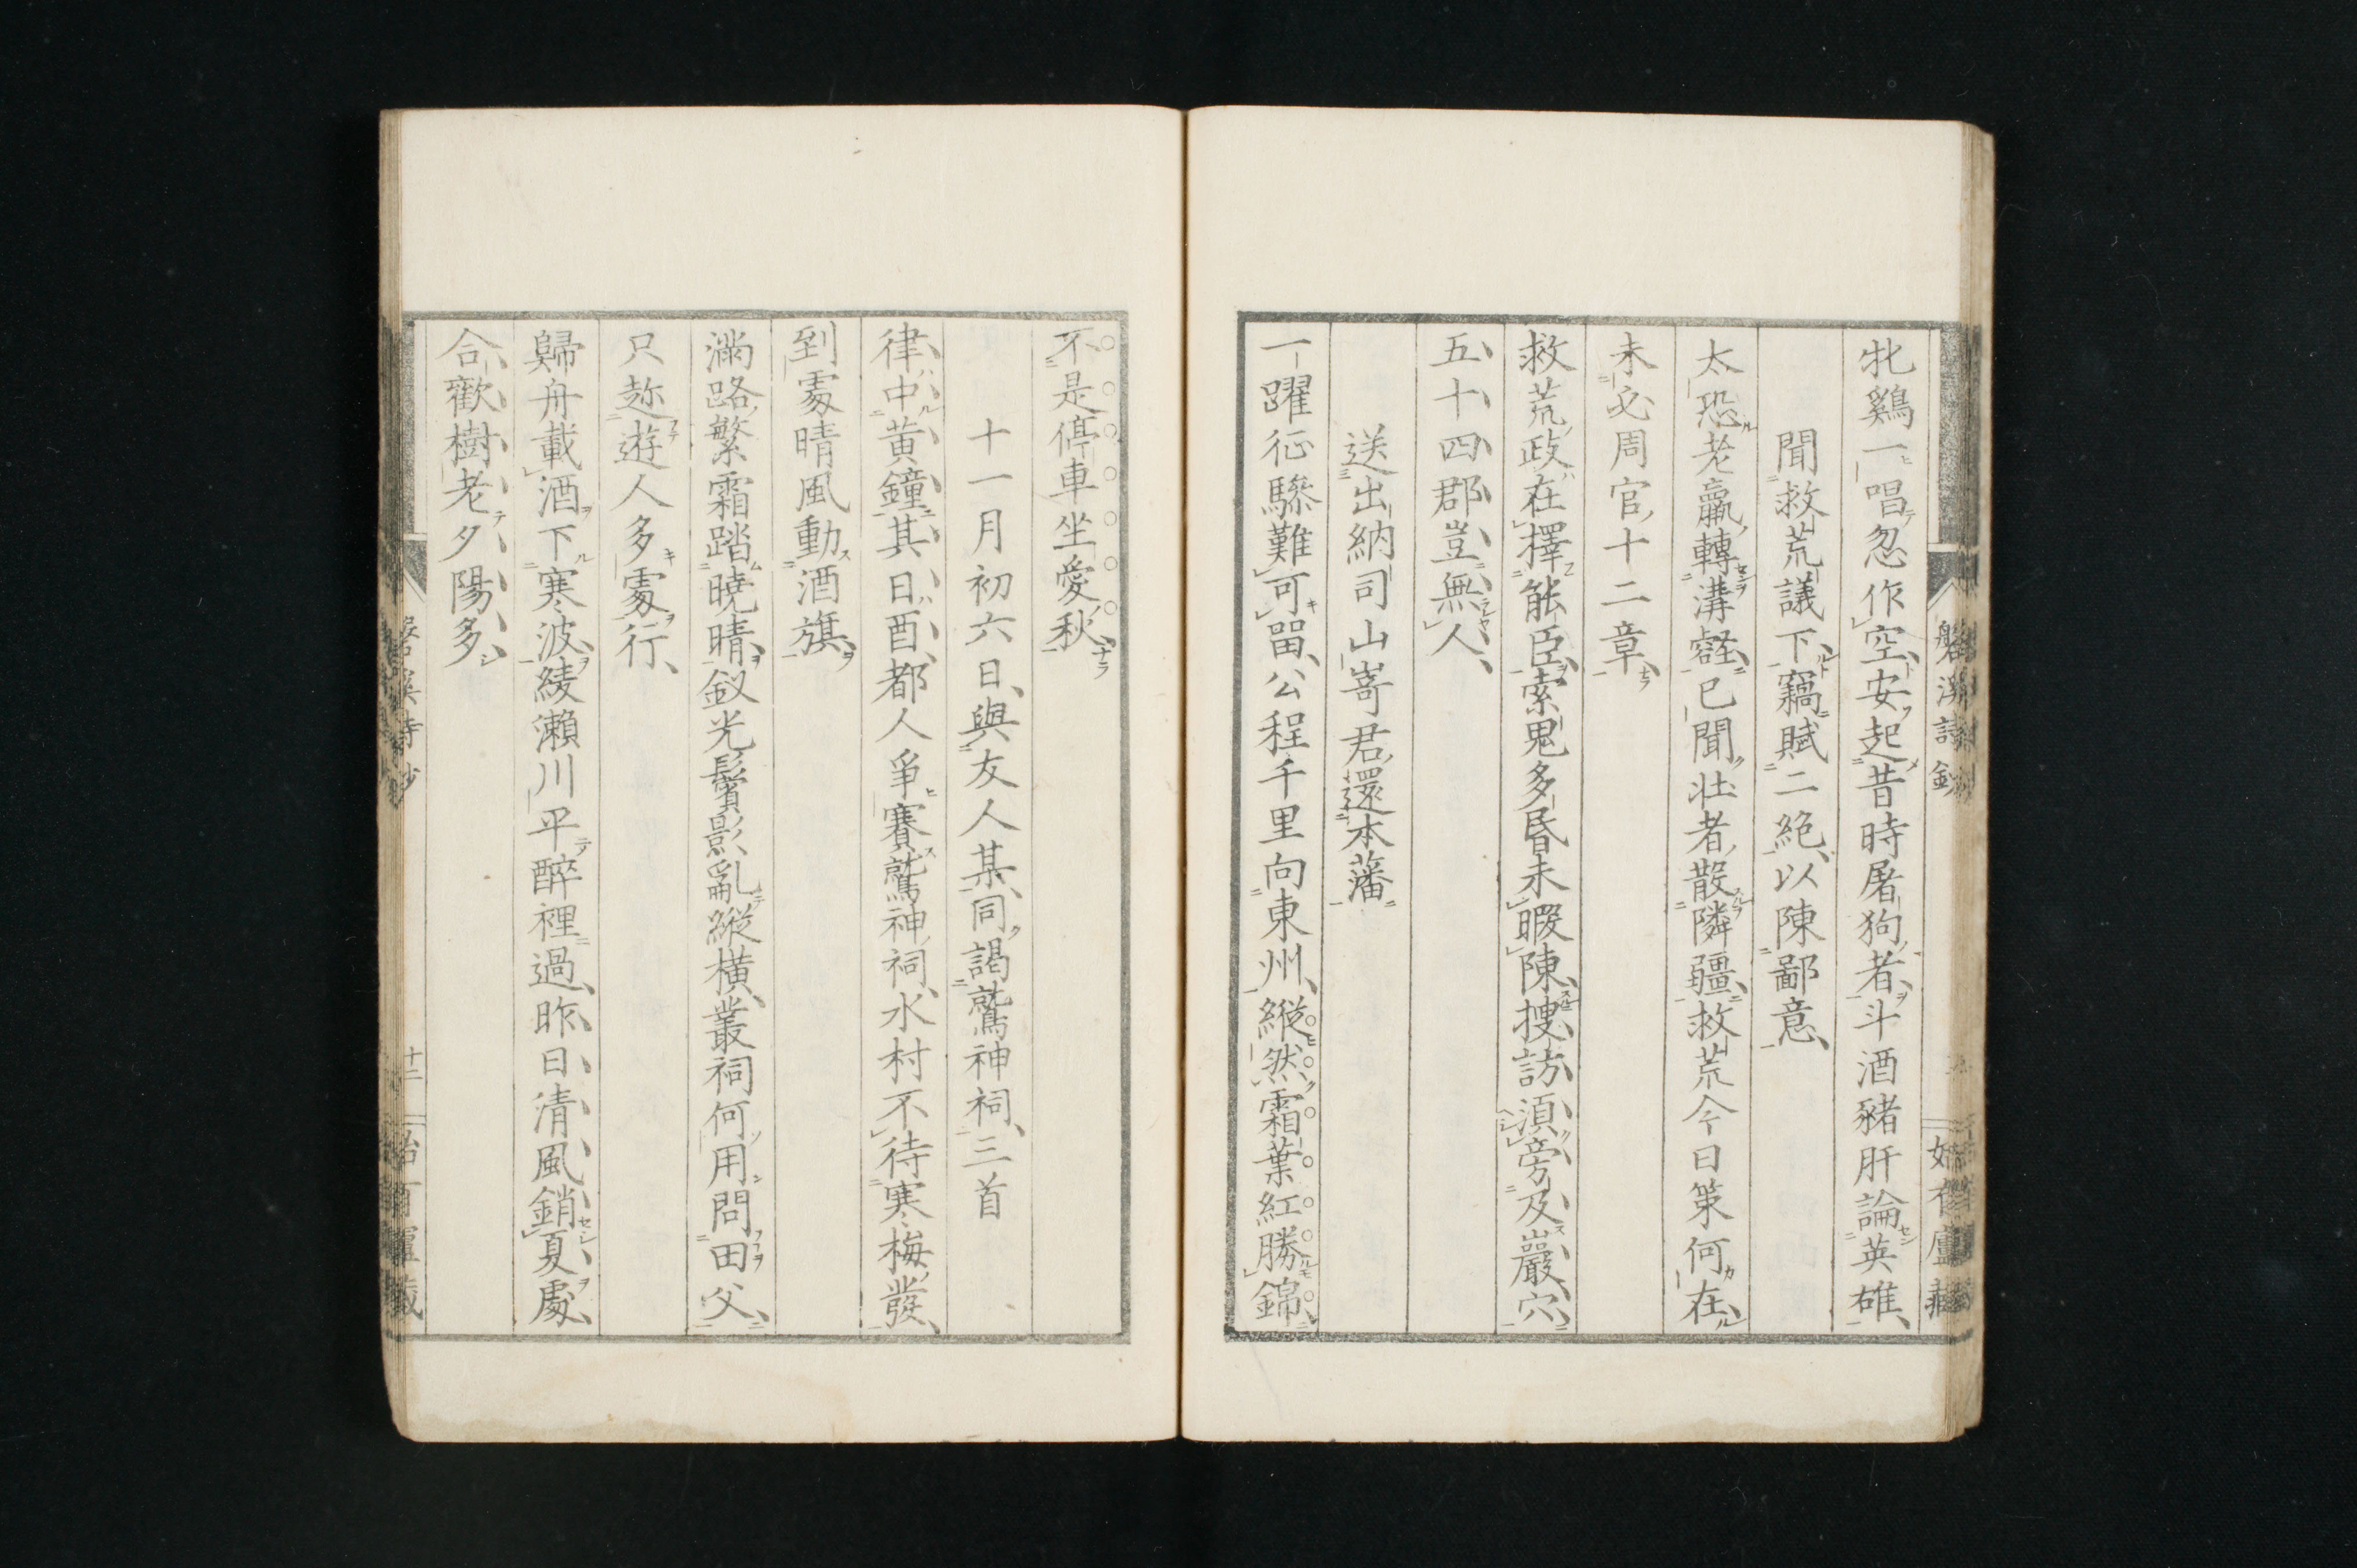 牝鷄一唱忽作空安起昔時屠狗者斗酒豬肝論英雄
聞救荒議下竊賦二絕以陳鄙意
太恐老羸轉溝壑已聞壯者散隣疆救荒今日策何在
未必周官十二章
救荒政在擇能臣索鬼多昏未暇陳搜訪須旁及巖穴
五十四郡豈無人
送出納司山嵜君還本藩
一躍征驂難可畱公程千里向東州縱然霜葉紅勝錦
不是停車坐愛秋
十一月初六日與友人某同謁鷲神祠三首
律中黃鐘其日酉都人爭賽鷲神祠水村不待寒梅發
到處晴風動酒旗
滿路繁霜踏曉晴釵光鬢影亂縱橫叢祠何用問田父
只趂遊人多處行
歸舟載酒下寒波綾瀨川平醉裡過昨日清風銷夏處
合歡樹老夕陽多